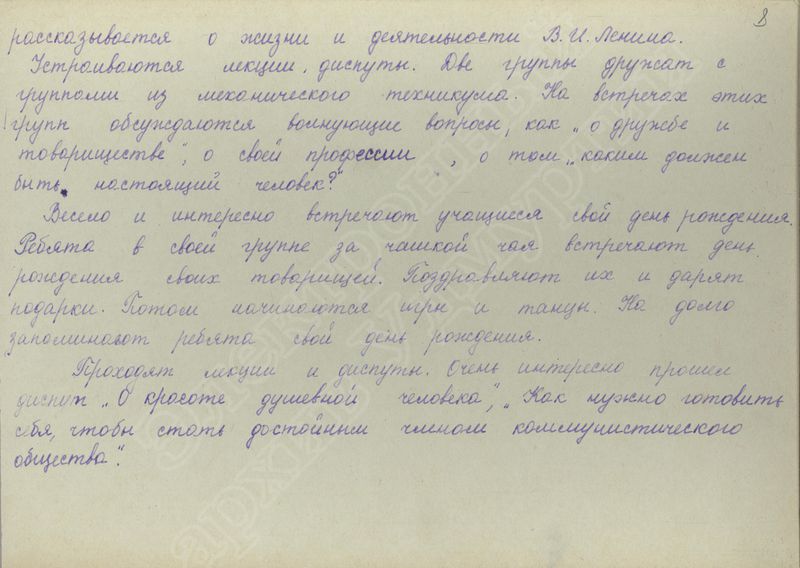 8
рассказывается о жизни и деятельности В.И. Ленина.
Устраиваются лекции, диспуты. Две группы дружат с
группами из механического техникума. На встречах этих
групп обсуждаются волнующие вопросы, как „о дружбе и
товариществе", о своей профессии, о том „каким должен
быть настоящий человек?"
Весело и интересно встречают учащиеся свой день рождения.
Ребята в своей группе за чашкой чая встречают день
рождения своих товарищей. Поздравляют их и дарят
подарки. Потом начинаются игры и танцы. На долго
запоминают ребята свой день рождения.
Проходят лекции и диспуты. Очень интересно прошел
диспут „О красоте душевной человека", „Как нужно готовить
себя, чтобы стать достойным членом коммунистического
общества".